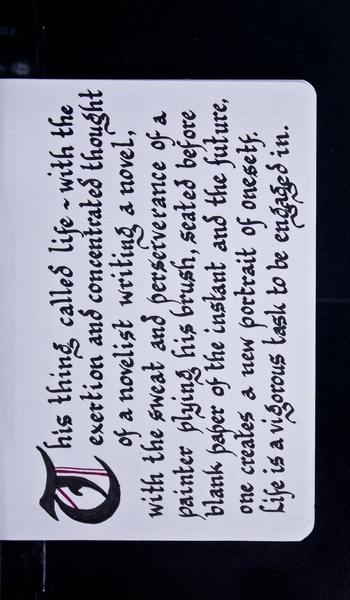 This thing called life ~ with the
exertion and concentrated thought
of a novelist writing a novel,
with the sweat and perserverance of a
painter plying his brush, seated before
blank paper of the instant and the future,
one creates a new portrait of oneself.
Life is a vigorous task to be engaged in.